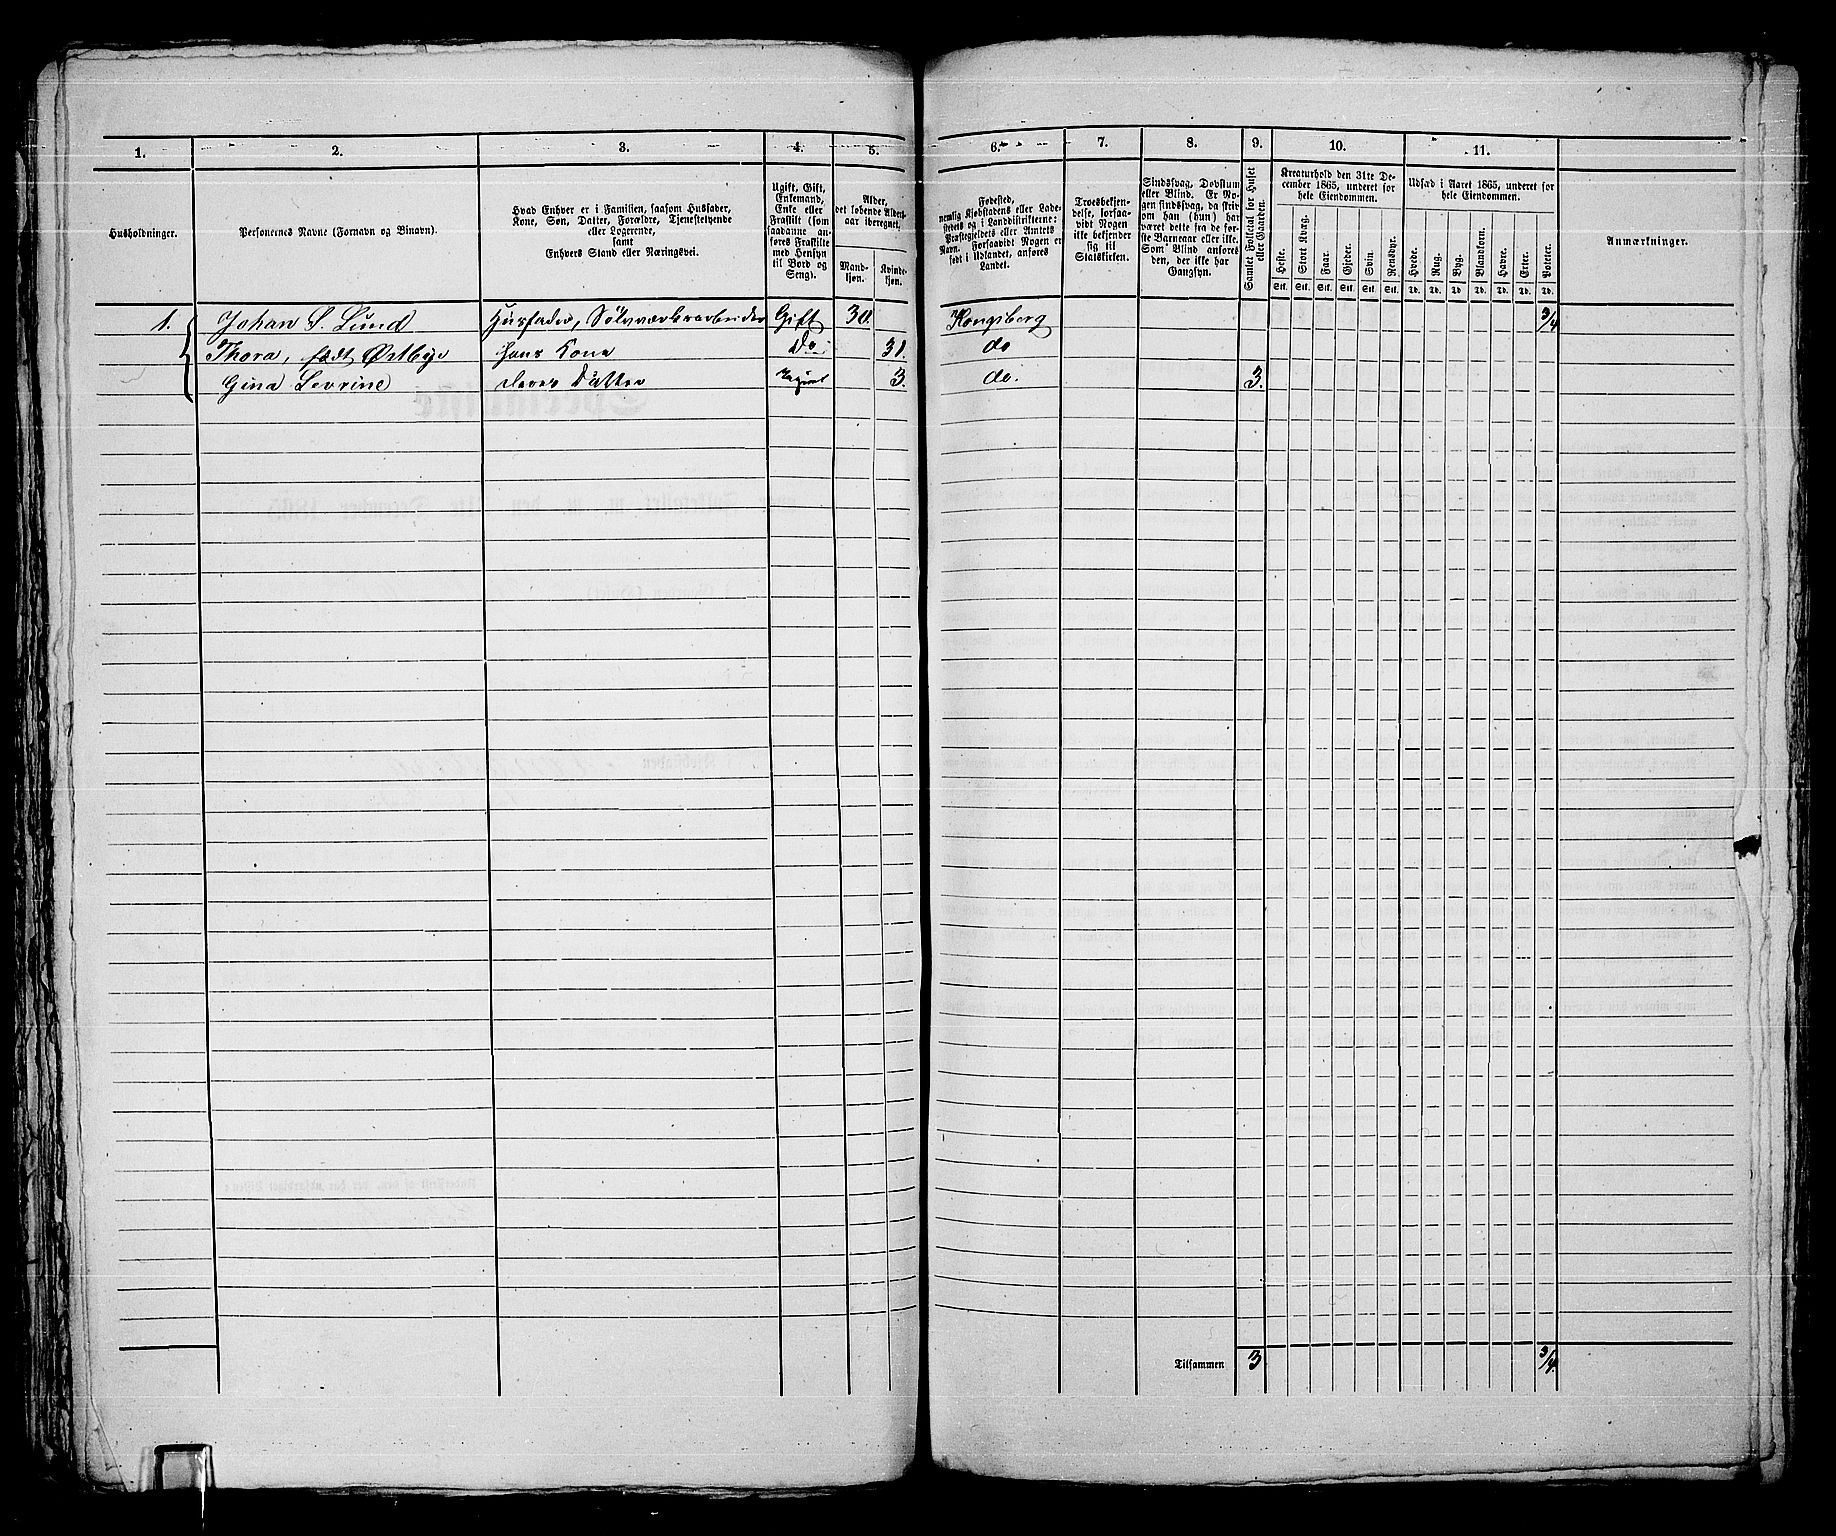 1.
2.
3.
4.
5.
6.
7.
8.
9.
10.
11.
Husholdninger.
Personernes Navne (Fornavn og Binavn).
Hvad Enhver er i Familien, saasom Husfader,
Kone, Søn, Datter, Forældre, Tjenestetyende
eller Logerende,
samt
Enhvers Stand eller Næringsvei.
Ugift, Gift,
Enkemand,
Enke eller
Fraskilt (som
saadanne an-
føres Fraskilte
med Hensyn
til Bord og
Seng).
Alder,
det løbende Alders-
aar iberegnet.
Mand-
kjøn.
Kvinde-
kjøn.
Fødested,
nemlig Kjøbstadens eller Lade-
stedets og i Landdistrikterne:
Præstegjeldets eller Amtets
Navn. Forsaavidt Nogen er
født i Udlandet, anføres
Landet.
Troesbekjen-
delse, forsaa-
vidt Nogen
ikke bekjender
sig til
Statskirken.
Sindssvag, Døvstum
eller Blind. Er No-
gen sindssvag, da skriv
om han (hun) har
været dette fra de før-
ste Barneaar eller ikke.
Som Blind anføres
den, der ikke har
Gangsyn.
Samlet Folketal for Huset
eller Gaarden.
Kreaturhold den 31te De-
cember 1865, underet for
hele Eiendommen.
Heste.
Stort Kvæg.
Faar.
Gjeder.
Svin.
Rensdyr.
Stk. Stk. Stk. Stk. Stk. Stk.
Udsæd i Aaret 1865, underet for
hele Eiendommen.
Hvede.
Rug.
Byg.
Blandkorn.
Havre.
Erter.
Poteter.
Td. Td. Td. Td. Td. Td. Td.
Anmærkninger.
1. Johan S. Lund Husfader, Sølvværksarbeider Gift 30. Kongsberg 3/4
Thora, født Østbye Hans Kone Do 31. do
Gina Levrine deres Datter Ugivt 3. do. 3.
Tilsammen 3 3/4.